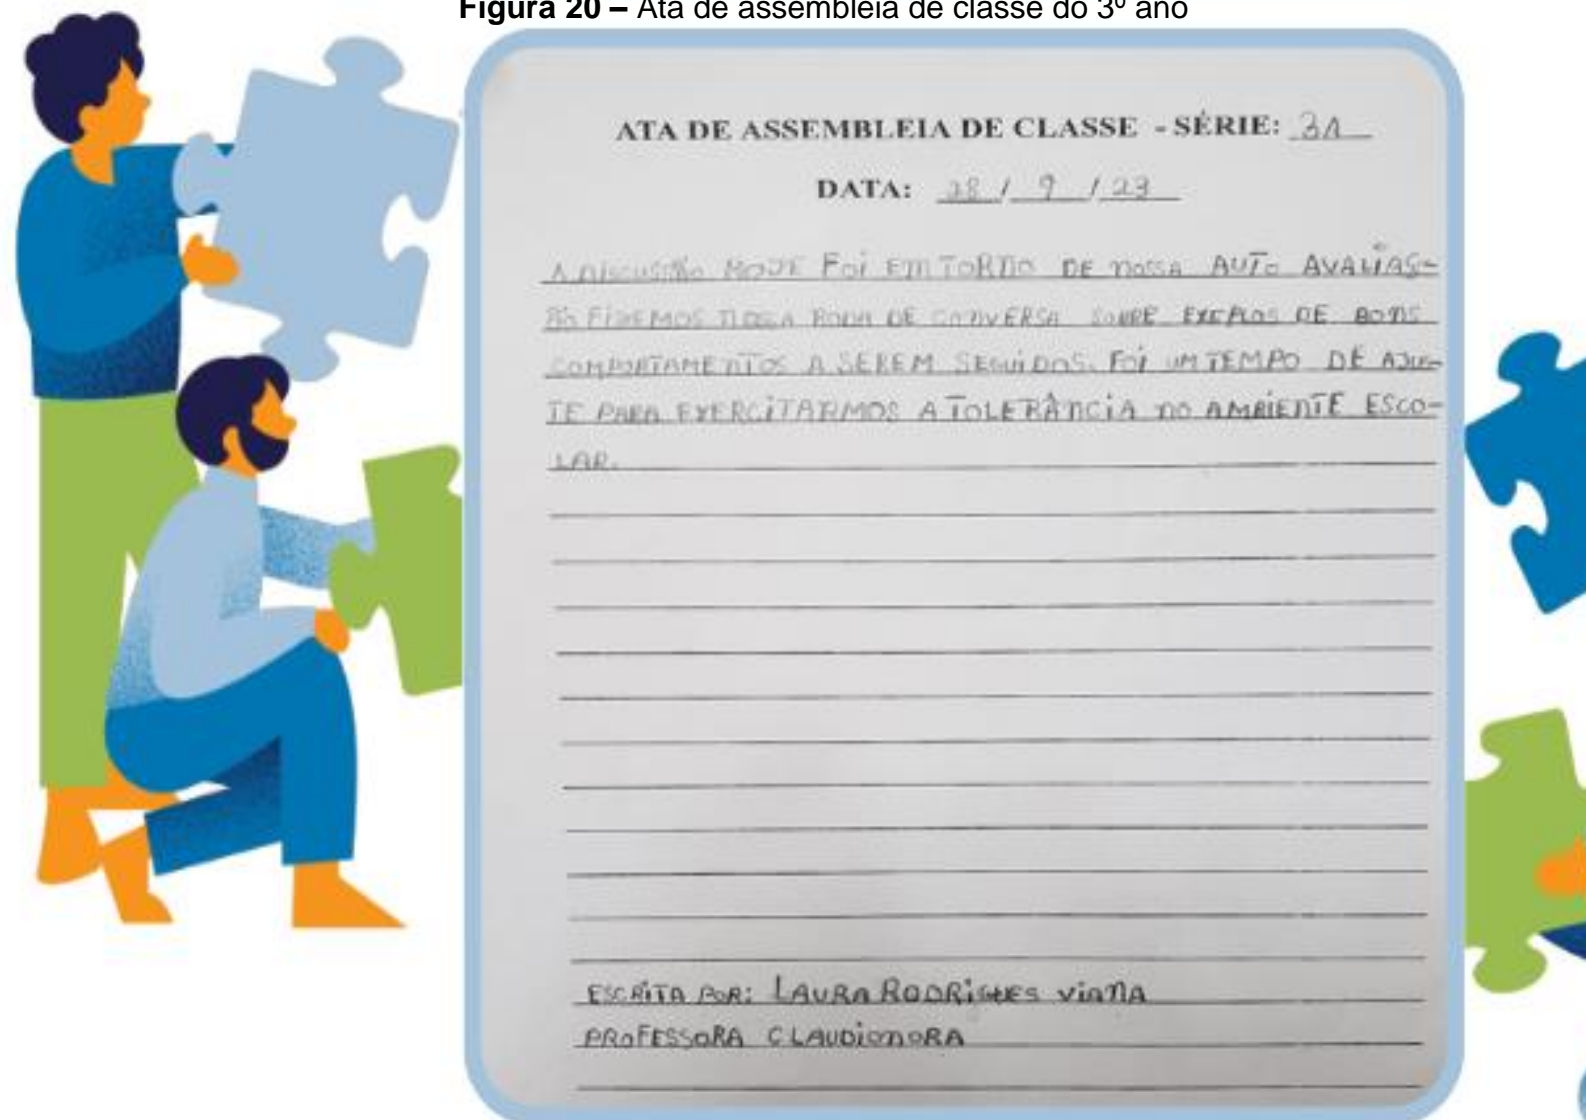 Figura 20 – Ata de assembleia de classe do 3º ano
ATA DE ASSEMBLEIA DE CLASSE - SÉRIE: 3A
DATA: 28 / 9 / 23
A DISCUSSÃO HOJE FOI EM TORNO DE NOSSA AUTO AVALIAÇ-
ÃO FIZEMOS NOSSA RODA DE CONVERSA SOBRE EXEPLOS DE BONS
COMPORTAMENTOS A SEREM SEGUIDOS. FOI UM TEMPO DE AJUS-
TE PARA EXERCITARMOS A TOLERÂNCIA NO AMBIENTE ESCO-
LAR.
ESCRITA POR: LAURA RODRIGUES VIANA
PROFESSORA CLAUDIONORA